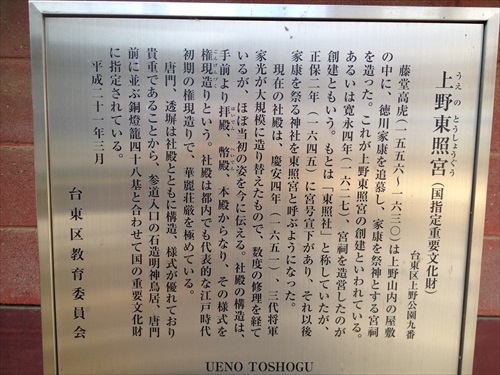 上野東照宮(国指定重要文化財)
うえのとうしょうぐう
台東区上野公園九番
藤堂高虎(一五五六~一六三〇)は上野山内の屋敷
の中に、徳川家康を追慕し、家康を祭神とする宮祠
を造った。これが上野東照宮の創建といわれている。
あるいは寛永四年(一六二七)、宮祠を造営したのが
創建ともいう。もとは「東照社」と称していたが、
正保二年(一六四五)に宮号宣下があり、それ以後
家康を祭る神社を東照宮と呼ぶようになった。
現在の社殿は、慶安四年(一六五一)、三代将軍
家光が大規模に造り替えたもので、数度の修理を経て
いるが、ほぼ当初の姿を今に伝える。社殿の構造は、
手前より拝殿、幣殿、本殿からなり、その様式を
はいでん
へいでん
権現造りという。社殿は都内でも代表的な江戸時代
ごんげんづくり
初期の権現造りで、華麗荘厳を極めている。
唐門、透塀は社殿とともに構造、様式が優れており
貴重であることから、参道入口の石造明神鳥居、唐門
前に並ぶ銅燈籠四十八基と合わせて国の重要文化財
に指定されている。
平成二十一年三月
台東区教育委員会
UENO TOSHOGU